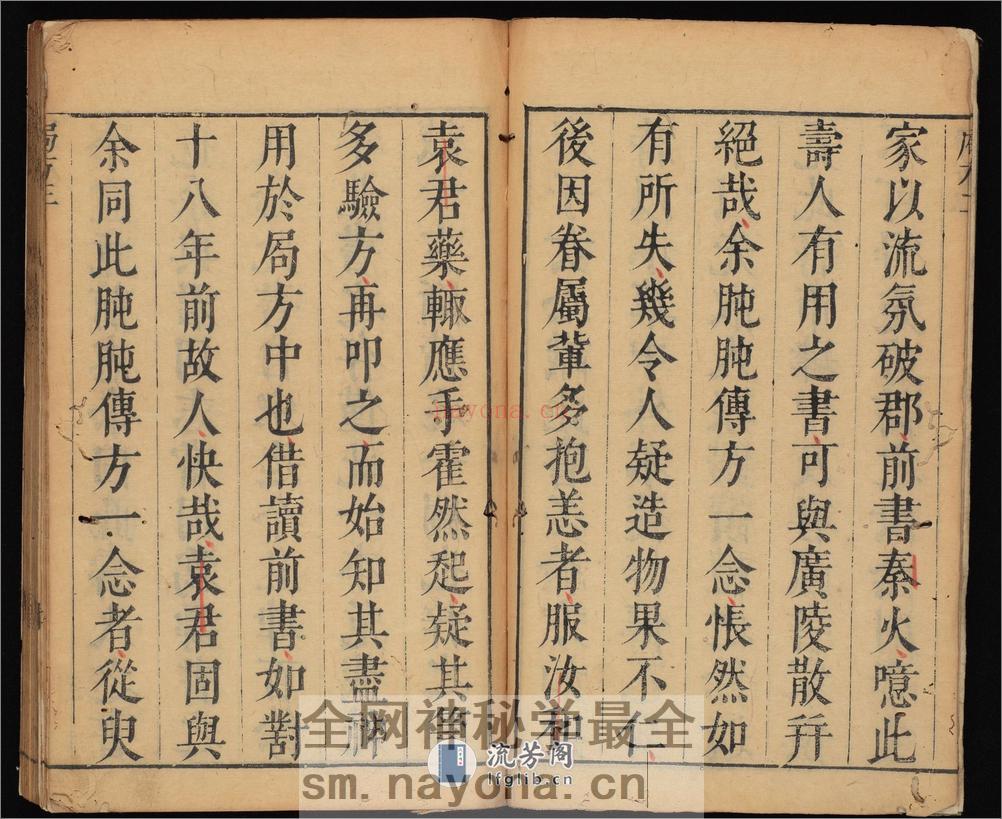 家以流氛破郡前書秦火噫此
壽人有用之書可與廣陵散幷
絕哉余肫肫傳方一念悵然如
有所失幾令人疑造物果不仁
後因眷屬輩多抱恙者服汝和
袁君藥輙應手霍然起疑其曾
多驗方再叩之而始知其盡神
用於局方中也借讀前書如對
十八年前故人快哉袁君固與
余同此肫肫傳方一念者從臾
局方
nayona.cn
全网神秘学最全
流芳阁
lfglib.cn
sm.nayona.cn